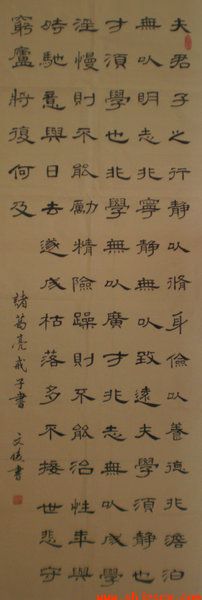 夫君子之行靜以脩身儉以養德非澹泊
無以明志非寧靜無以致遠夫學須靜也
才須學也非學無以廣才非志無以成學
淫慢則不能勵精險躁則不能治性年與
時馳意與日去遂成枯落多不接世悲守
窮廬將復何及
諸葛亮戒子書
文俊書